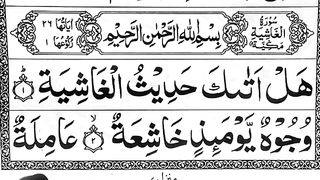 سُوْرَةُ الْغَاشِيَةِ مَكِّيَّةٌ
بِسْمِ اللّٰهِ الرَّحْمٰنِ الرَّحِيْمِ
اٰيَاتُهَا ٢٦ رُكُوْعُهَا ١
هَلْ اَتٰىكَ حَدِيْثُ الْغَاشِيَةِ ؕ ١
وُجُوْهٌ يَّوْمَىِٕذٍ خَاشِعَةٌ ۙ ٢ عَامِلَةٌ